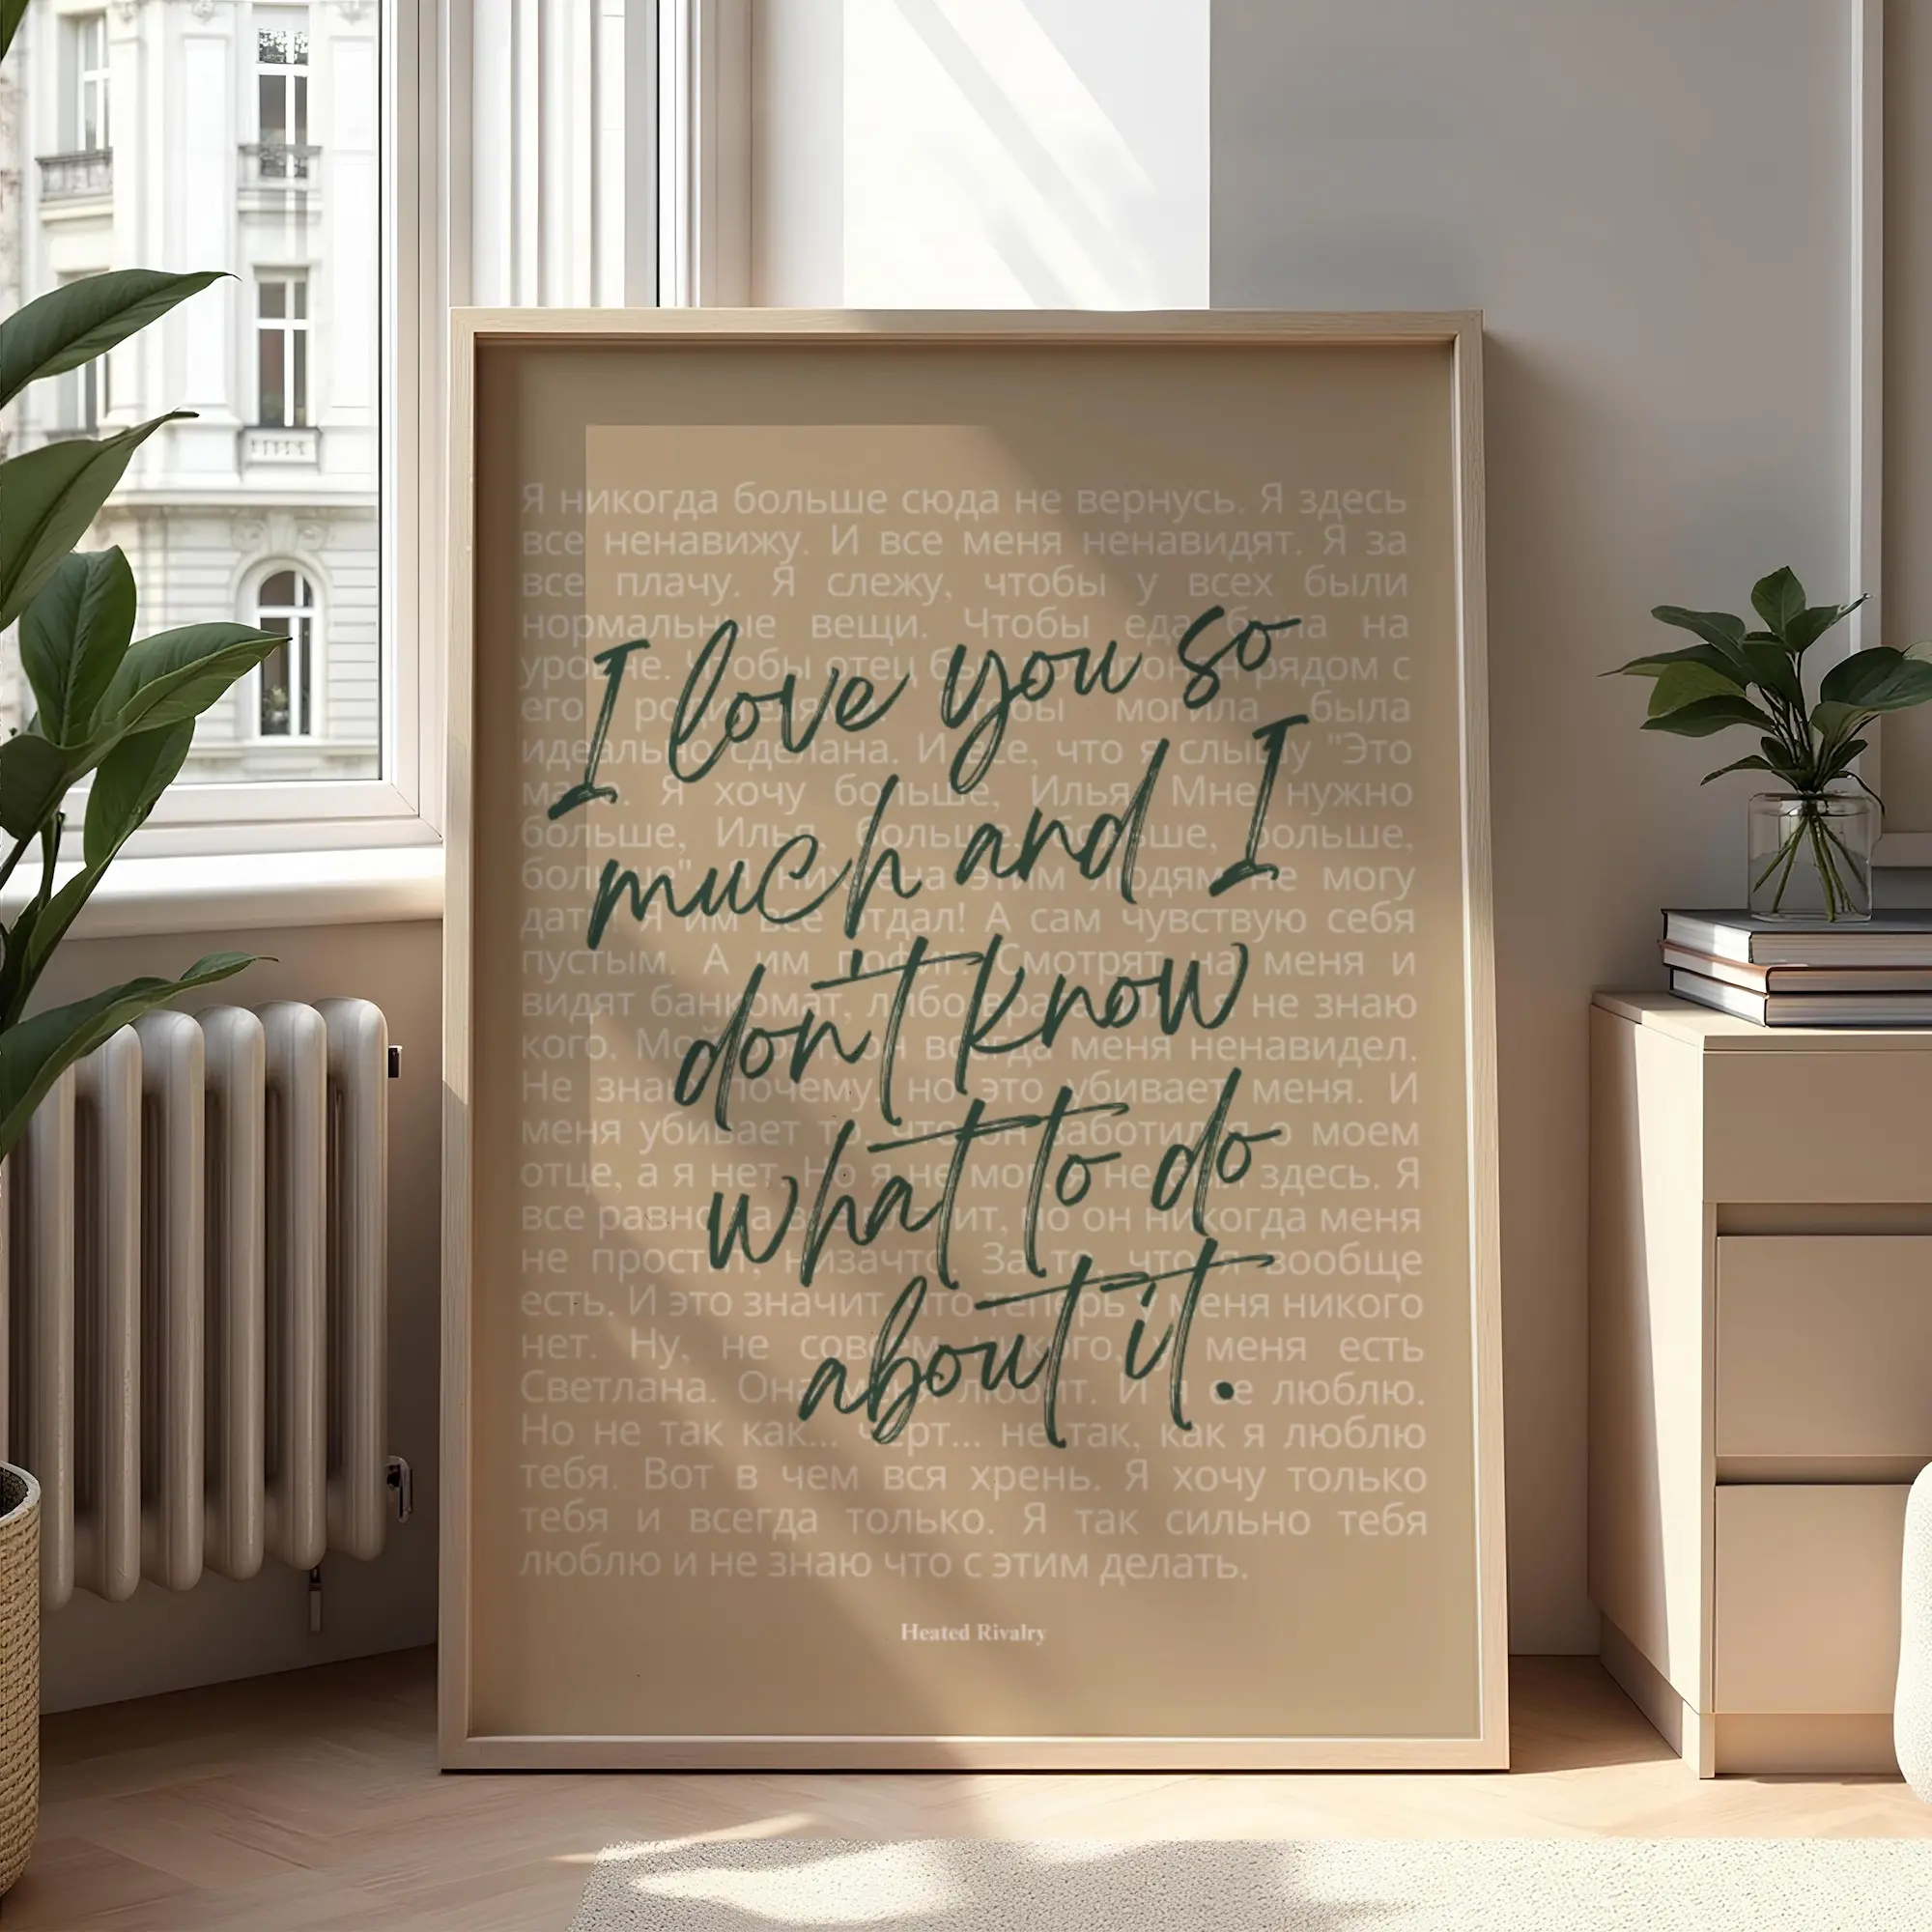 Я никогда больше сюда не вернусь. Я здесь
все ненавижу. И все меня ненавидят. Я за
все плачу. Я слежу, чтобы у всех были
нормальные вещи. Чтобы еда была на
уровне. Чтобы отец рядом с
его могила была
идеально сделана. И все, что я слышу "Это
Я хочу больше, Илья. Мне нужно
больше, Илья, больше, больше, больше,
больше". этим людям не могу
дать. Я им все отдал! А сам чувствую себя
пустым. А им пофиг. Смотрят на меня и
видят банкомат, либо я не знаю
кого. меня ненавидел.
Не знаю почему, но это убивает меня. И
меня убивает то, что он заботился о моем
отце, а я нет. Но я не могу не здесь. Я
все равно но он никогда меня
не простит, низачто. За то, что я вообще
есть. И это значит, что теперь у меня никого
нет. Ну, не совсем никого, у меня есть
Светлана. Она любит. И я ее люблю.
Но не так как... черт... не так, как я люблю
тебя. Вот в чем вся хрень. Я хочу только
тебя и всегда только. Я так сильно тебя
люблю и не знаю что с этим делать.
I love you so
much and I
don't know
what to do
about it.
Heated Rivalry